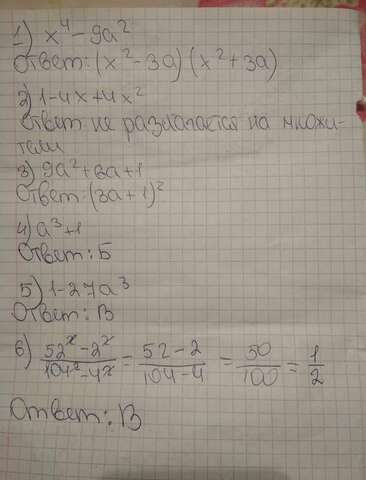 1) x⁴ - 9a²
Ответ: (x² - 3a) (x² + 3a)
2) 1 - 4x + 4x²
Ответ: не разлагается на множи-
тели
3) 9a² + 6a + 1
Ответ: (3a + 1)²
4) a³ + 1
Ответ: Б
5) 1 - 27a³
Ответ: В
6) (52² - 2²)/(104² - 4²) = (52 - 2)/(104 - 4) = 50/100 = 1/2
Ответ: В